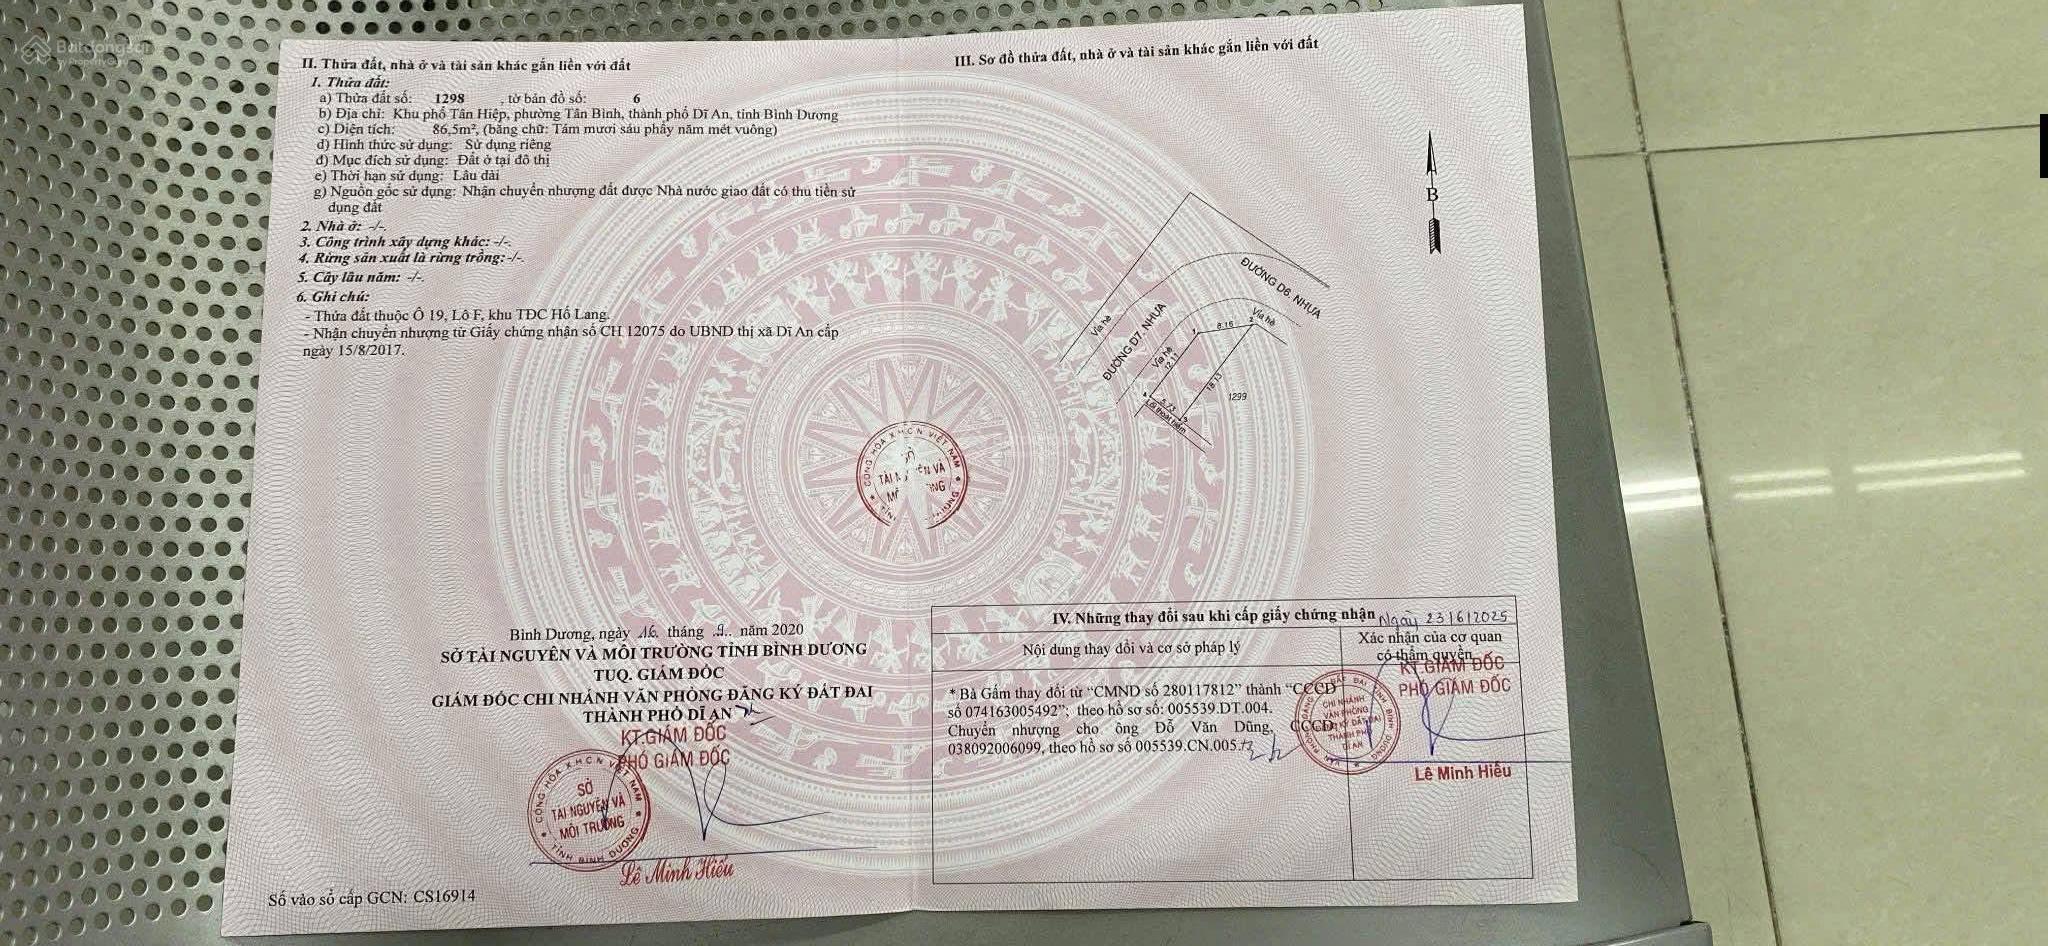 Batdongsan
by PropertyGuru
II. Thửa đất, nhà ở và tài sản khác gắn liền với đất
1. Thửa đất:
a) Thửa đất số: 1298 , tờ bản đồ số: 6
b) Địa chỉ: Khu phố Tân Hiệp, phường Tân Bình, thành phố Dĩ An, tỉnh Bình Dương
c) Diện tích: 86,5m², (bằng chữ: Tám mươi sáu phẩy năm mét vuông)
d) Hình thức sử dụng: Sử dụng riêng
đ) Mục đích sử dụng: Đất ở tại đô thị
e) Thời hạn sử dụng: Lâu dài
g) Nguồn gốc sử dụng: Nhận chuyển nhượng đất được Nhà nước giao đất có thu tiền sử
dụng đất
2. Nhà ở: -/-.
3. Công trình xây dựng khác: -/-.
4. Rừng sản xuất là rừng trồng: -/-.
5. Cây lâu năm: -/-.
6. Ghi chú:
- Thửa đất thuộc Ô 19, Lô F, khu TĐC Hố Lang.
- Nhận chuyển nhượng từ Giấy chứng nhận số CH 12075 do UBND thị xã Dĩ An cấp
ngày 15/8/2017.
Bình Dương, ngày 16 tháng 9 năm 2020
SỞ TÀI NGUYÊN VÀ MÔI TRƯỜNG TỈNH BÌNH DƯƠNG
TUQ. GIÁM ĐỐC
GIÁM ĐỐC CHI NHÁNH VĂN PHÒNG ĐĂNG KÝ ĐẤT ĐAI
THÀNH PHỐ DĨ AN
KT.GIÁM ĐỐC
PHÓ GIÁM ĐỐC
CỘNG HÒA XHCN VIỆT NAM
SỞ
TÀI NGUYÊN VÀ
MÔI TRƯỜNG
TỈNH BÌNH DƯƠNG
Lê Minh Hiếu
Số vào sổ cấp GCN: CS16914
CỘNG HÒA XHCN VIỆT NAM
III. Sơ đồ thửa đất, nhà ở và tài sản khác gắn liền với đất
B
ĐƯỜNG D6. NHỰA
Vỉa hè
ĐƯỜNG D7. NHỰA
Vỉa hè
Vỉa hè
1
8.16
2
12.11
18.13
1299
4
5.73
3
Lối thoát hiểm
IV. Những thay đổi sau khi cấp giấy chứng nhận
Ngày 23/6/2025
Nội dung thay đổi và cơ sở pháp lý
Xác nhận của cơ quan
có thẩm quyền
* Bà Gấm thay đổi từ “CMND số 280117812” thành “CCCD
số 074163005492”; theo hồ sơ số: 005539.DT.004.
Chuyển nhượng cho ông Đỗ Văn Dũng, CCCD:
038092006099, theo hồ sơ số 005539.CN.005.
KT.GIÁM ĐỐC
PHÓ GIÁM ĐỐC
CHI NHÁNH
VĂN PHÒNG
ĐĂNG KÝ ĐẤT ĐAI
THÀNH PHỐ
DĨ AN
Lê Minh Hiếu